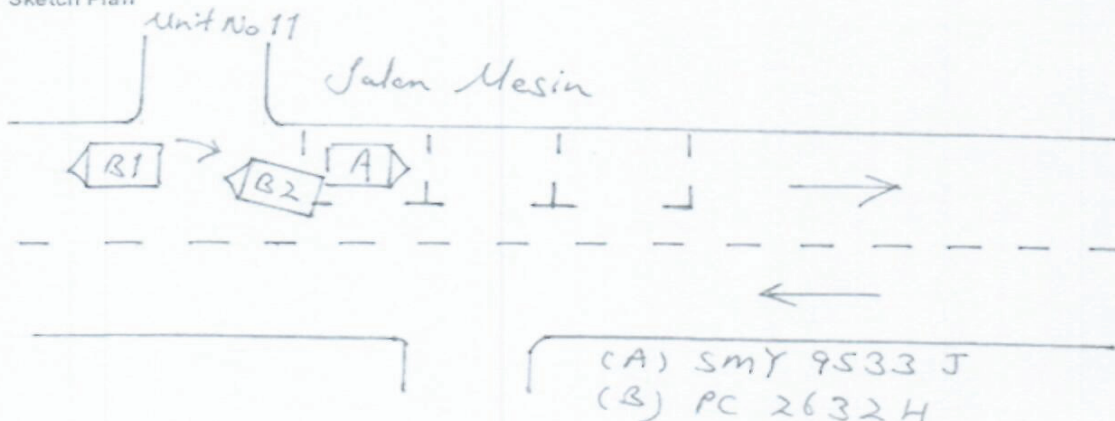 Sketch Plan
Unit No 11
Jalan Mesin
B1
B2
A
(A) SMY 9533 J
(B) PC 2632 H